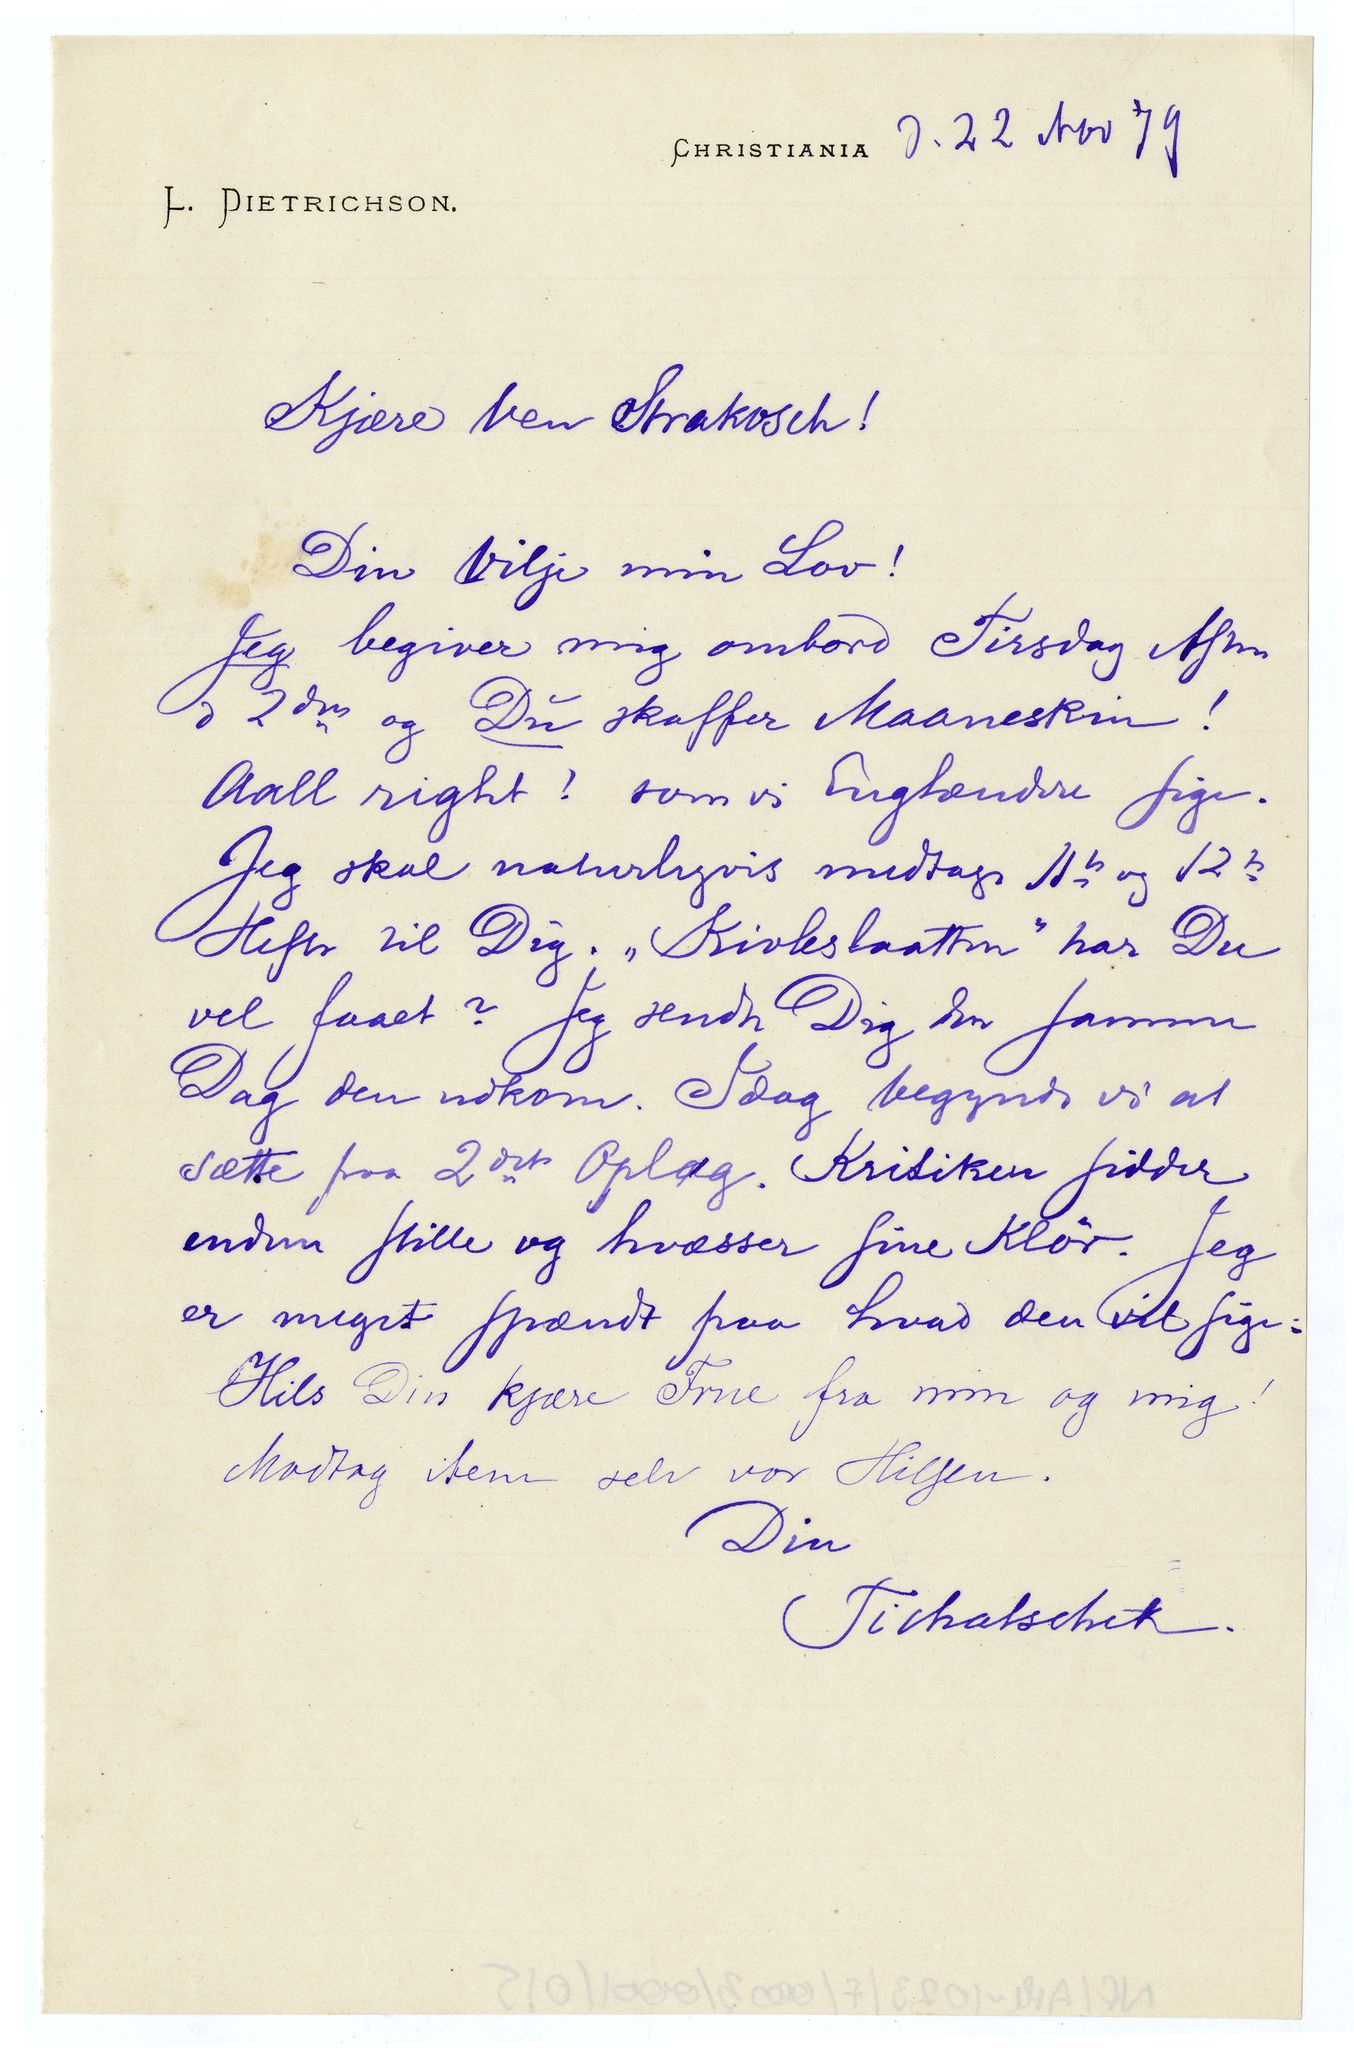 CHRISTIANIA d. 22 Nov 79
L. DIETRICHSON.
Kjære Ven Strakosch!
Din Vilje min Lov!
Jeg begiver mig ombord Tirsdag Aften
d 2den og Du skaffer Maaneskin!
Aall right! som vi Englændere sige.
Jeg skal naturligvis medtage 11te og 12te
Hefte til Dig. „Kivleslaatten" har Du
vel faaet? Jeg sendte Dig den samme
Dag den udkom. Idag begynde vi at
sætte paa 2det Oplag. Kritiken sidder
endnu stille og hvæsser sine Klör. Jeg
er meget spændt paa hvad den vil sige.
Hils Din kjære Frue fra min og mig!
Modtag selv vor Hilsen.
Din
Tichatscheck.